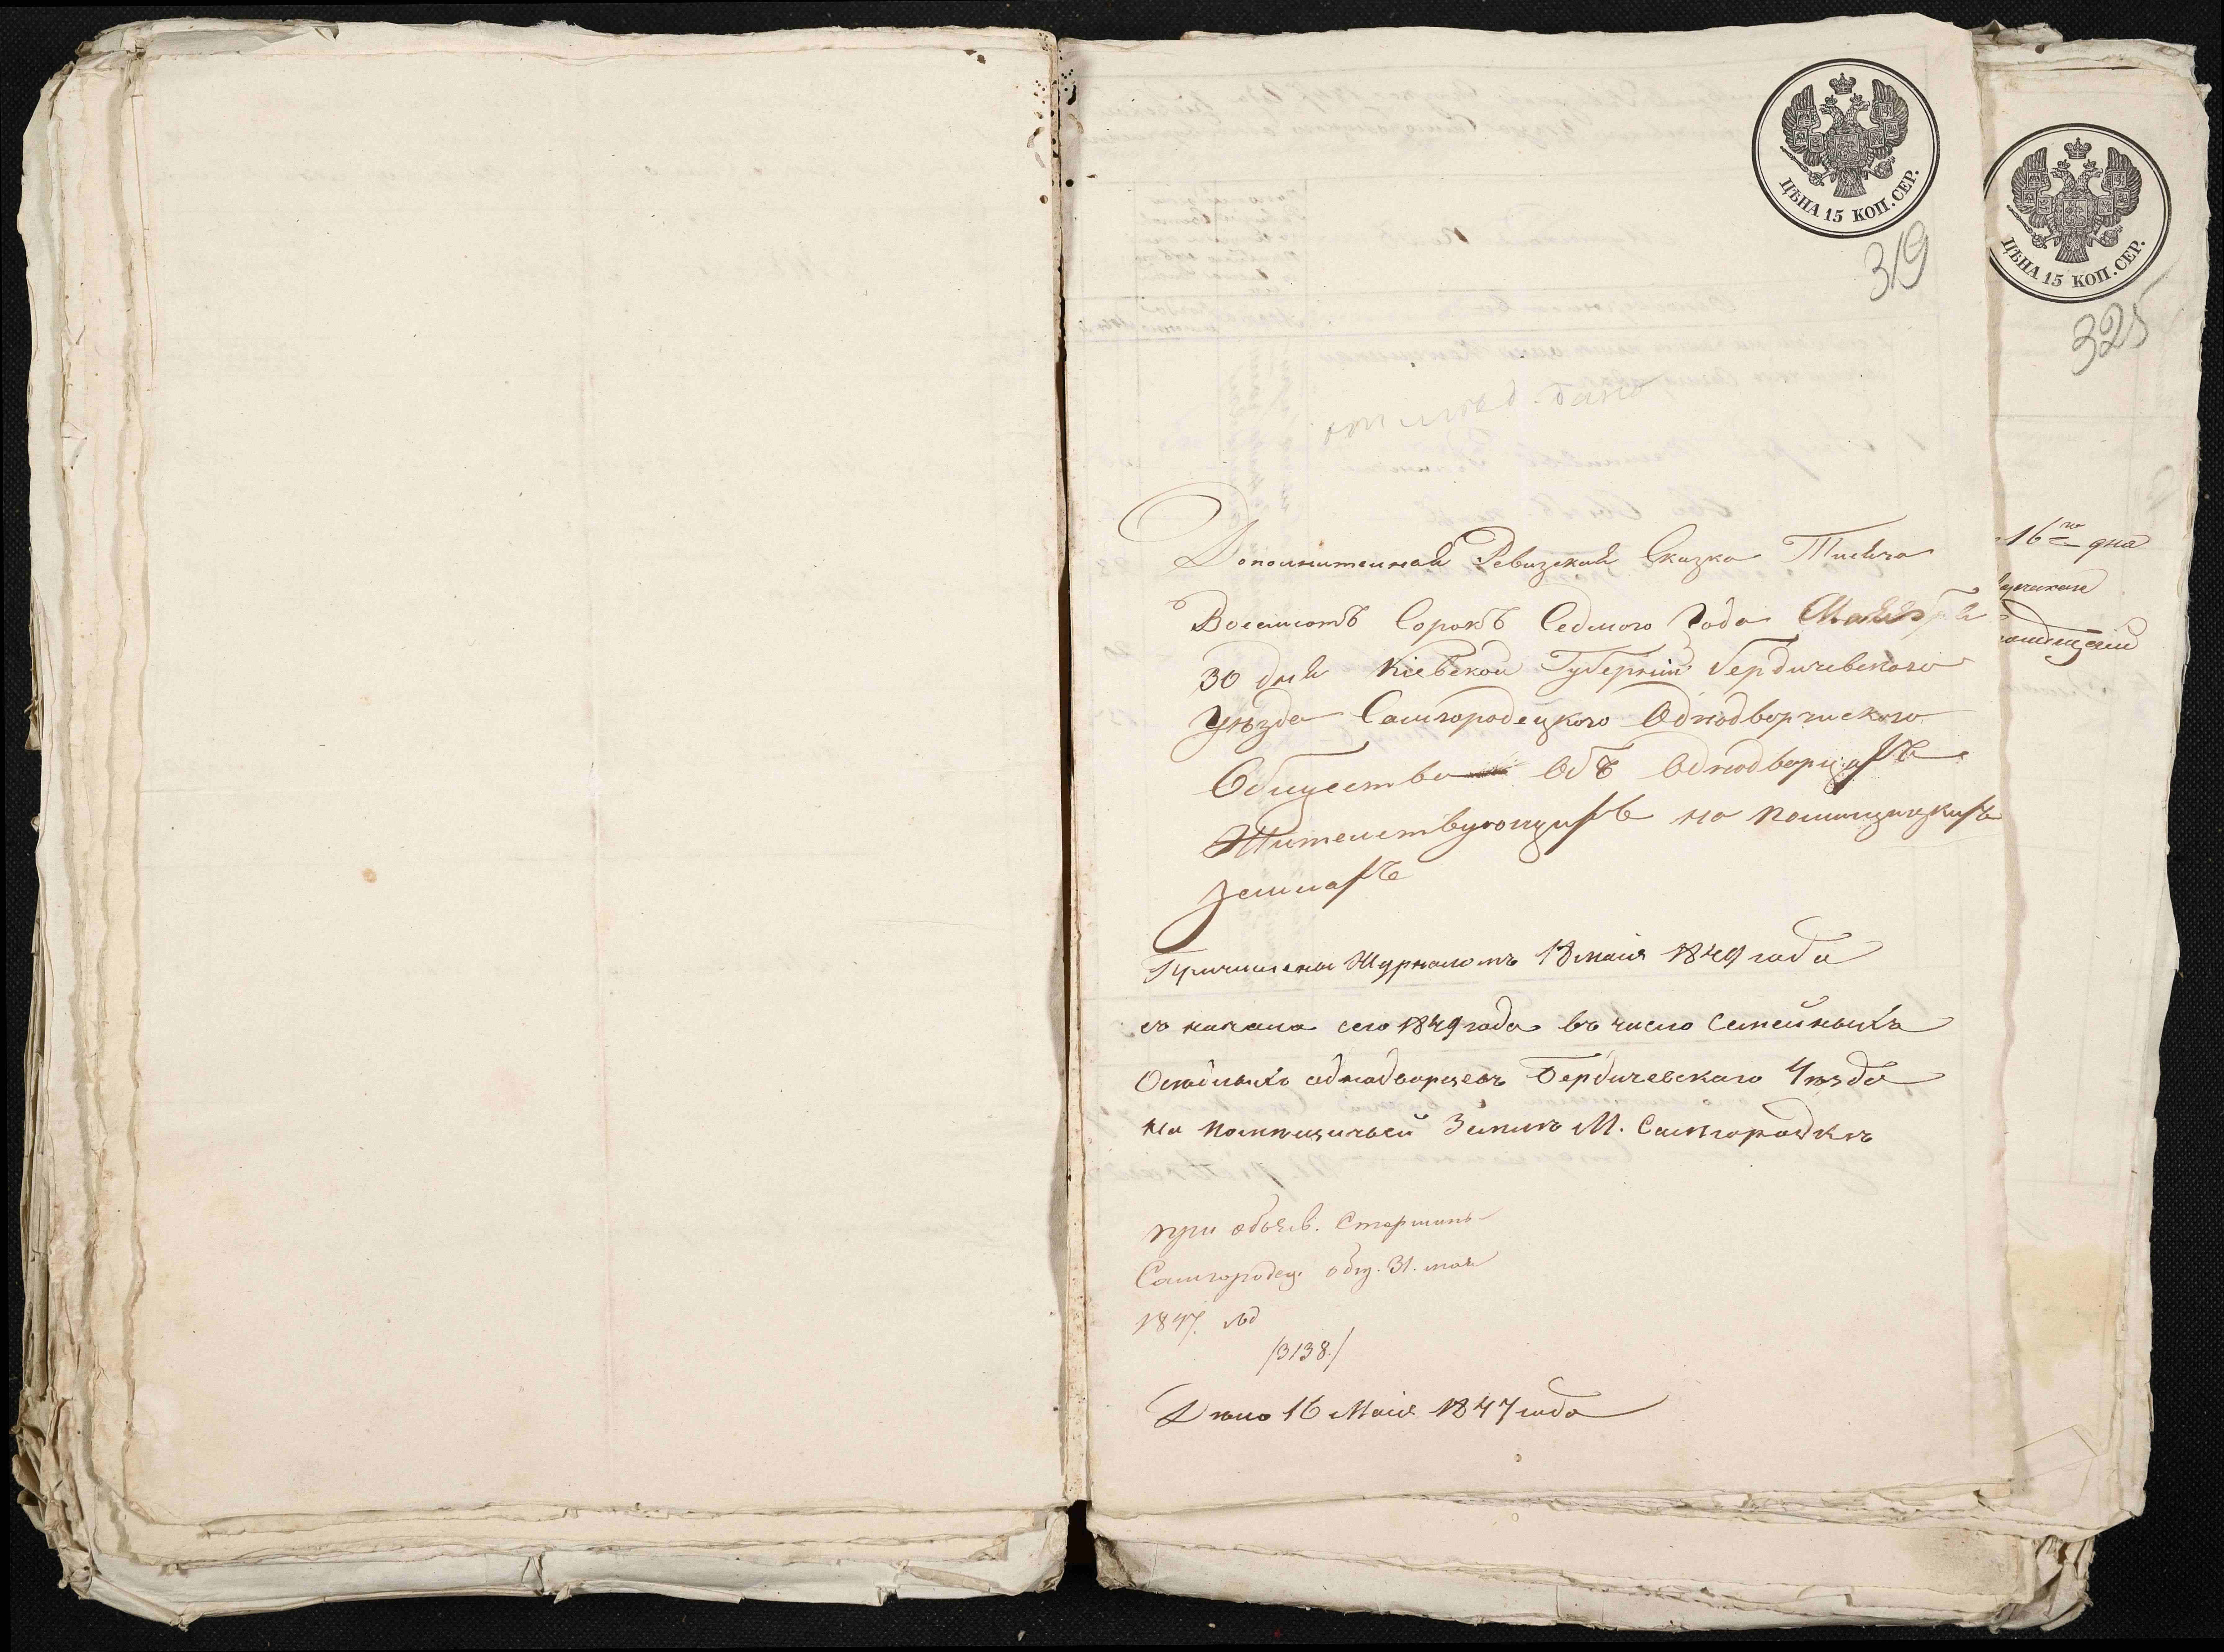 ЦѢНА 15 КОП. СЕР.
319
Дополнительная Ревизская Сказка Тысяча
Восемсотъ Сорокъ Седмого Года
30 дня Кіевской Губерніи Бердичевского
Уѣзда Самгородецкого Однодворческого
Общества Объ Однодворцахъ
Жительствующихъ на помѣщицкихъ
земляхъ
Причислены Журналомъ 18 маія 1849 года
съ начала сего 1849 года въ число семейныхъ
Осѣдлыхъ однодворцевъ Бердичевскаго Уѣзда
на помѣщичьей Землѣ М. Самгородкѣ
при объяв. Старшины
Самгородец. общ. 31. мая
1847.
/3138./
Дѣло 16 Маія 1847 года
ЦѢНА 15 КОП. СЕР.
325
16го дня